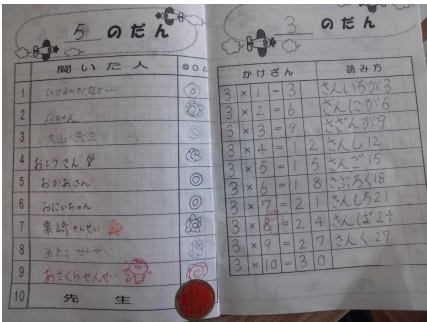 5 のだん
聞いた人 ◎○△
1
2
3 大山先生
4 おとうさん
5 おかあさん
6 おにいちゃん
7 せんせい
8
9 あさくらせんせい
10 先生
3 のだん
かけざん 読み方
3×1=3 さんいちが3
3×2=6 さんにが6
3×3=9 さざんが9
3×4=12 さんし12
3×5=15 さんご15
3×6=18 さぶろく18
3×7=21 さんしち21
3×8=24 さんぱ24
3×9=27 さんく27
3×10=30